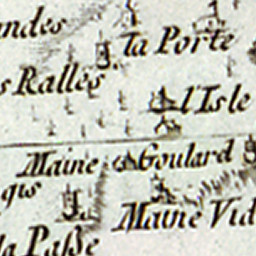 ndes
la Porte
s Rallès
l'Isle
Maine Goulard
gis
Maine Vid
la Passe